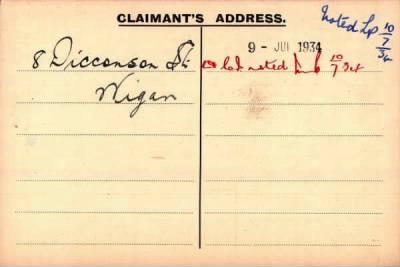 CLAIMANT'S ADDRESS.
Noted Lp 10/7/34
8 Dicconson St.
Wigan
9 - JUL 1934
noted 10/7/34